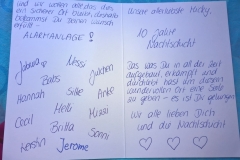 und wir wollen aber das dies
ein sicherer Ort bleibt, deshalb
bekommst Du deinen wunsch
erfüllt -
ALARMANLAGE!
Joshua
Lissi
Julchen
Babs
Hannah
Silke
Anke
Cecil
Helli
Mizzi
Britta
Sonni
Kerstin
Jerome
Unsere allerliebste Ricky,
10 Jahre
Nachtschicht
Das was Du in all der Zeit
aufgebaut, erkämpft und
durchlebt hast um diesen
wundervollen Ort eine Seele
zu geben - es ist Dir gelungen
wir alle lieben Dich
und die Nachtschicht